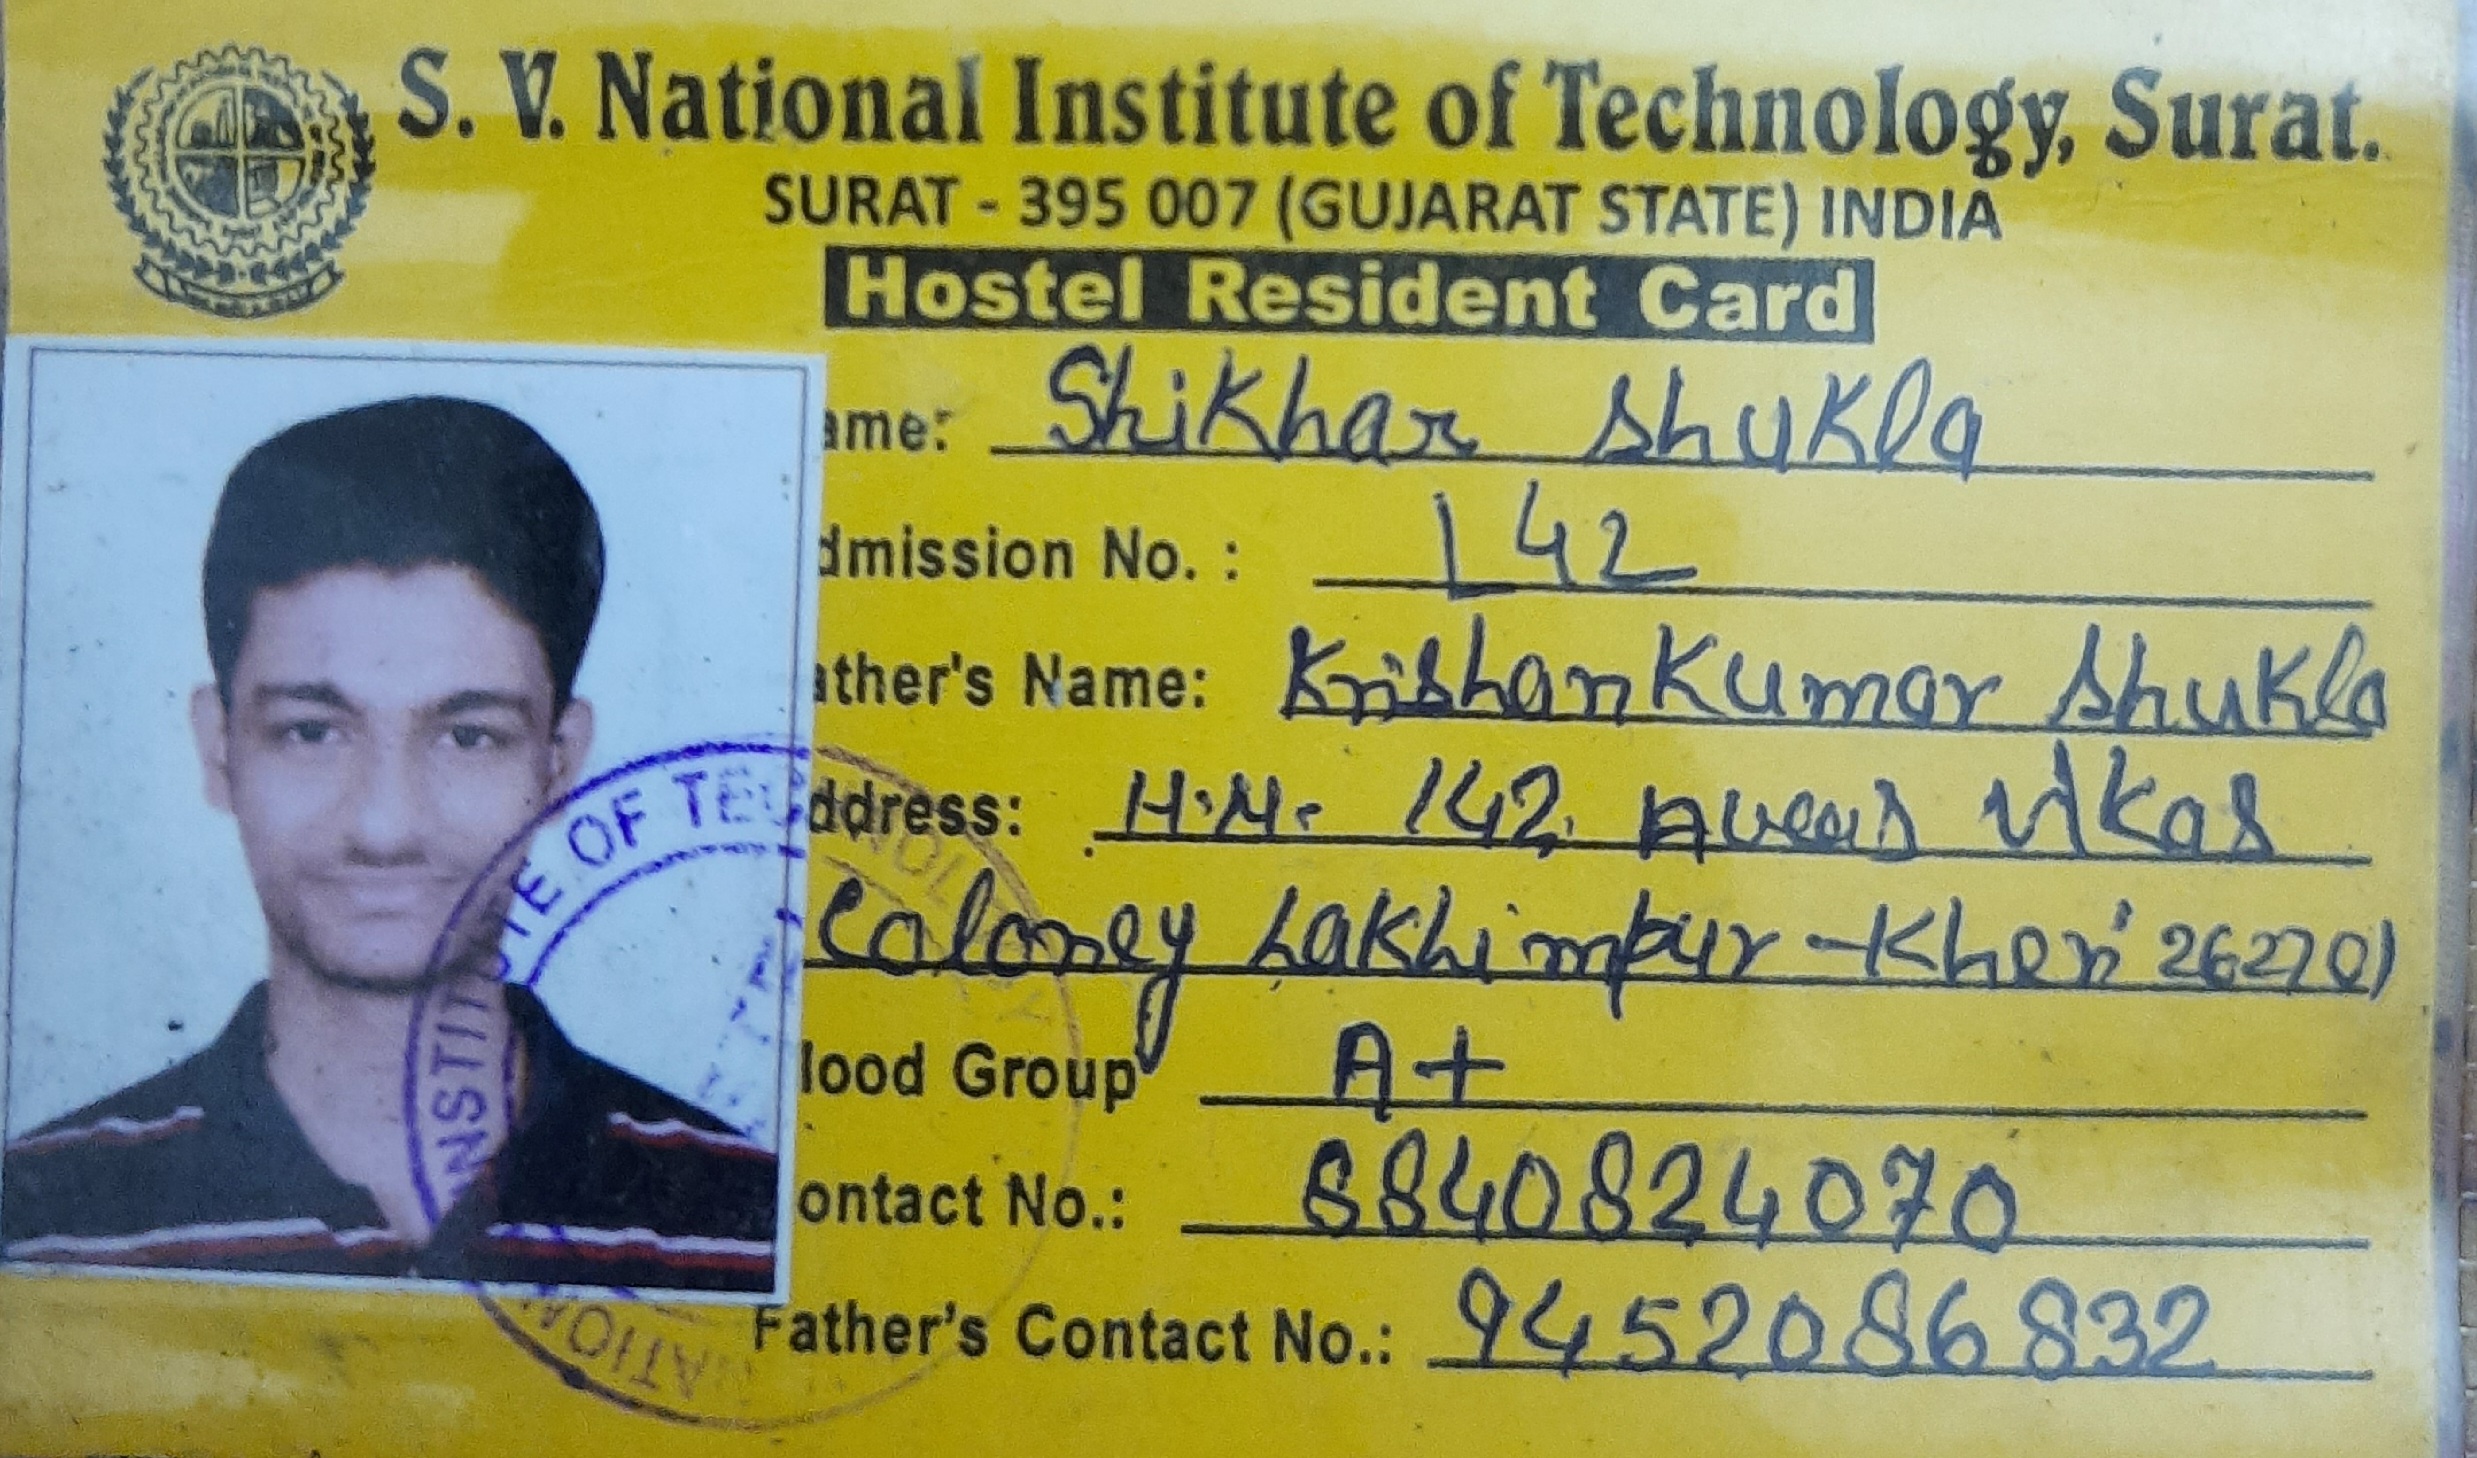 S. V. National Institute of Technology, Surat.
SURAT - 395 007 (GUJARAT STATE) INDIA
Hostel Resident Card
ame: Shikhar Shukla
dmission No. : 142
ather's Name: Krishan Kumar Shukla
ddress: H.N. 142, Avas Vikas
Coloney Lakhimpur-Kheri 262701
lood Group A+
ontact No.: 8840824070
Father's Contact No.: 9452086832
NATIONAL INSTITUTE OF TECHNOLOGY